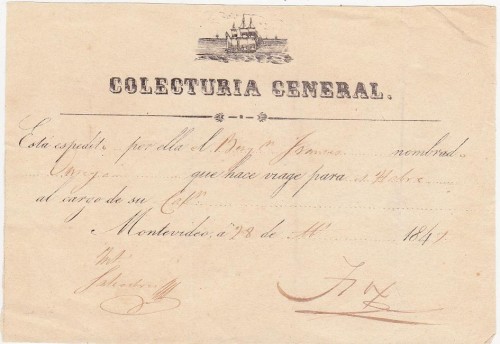 COLECTURIA GENERAL.
Está expedito por ella el Berg.n Frances nombrad
que hace viage para el Habre
al cargo de su Cap.n
Montevideo, á 28 de 184